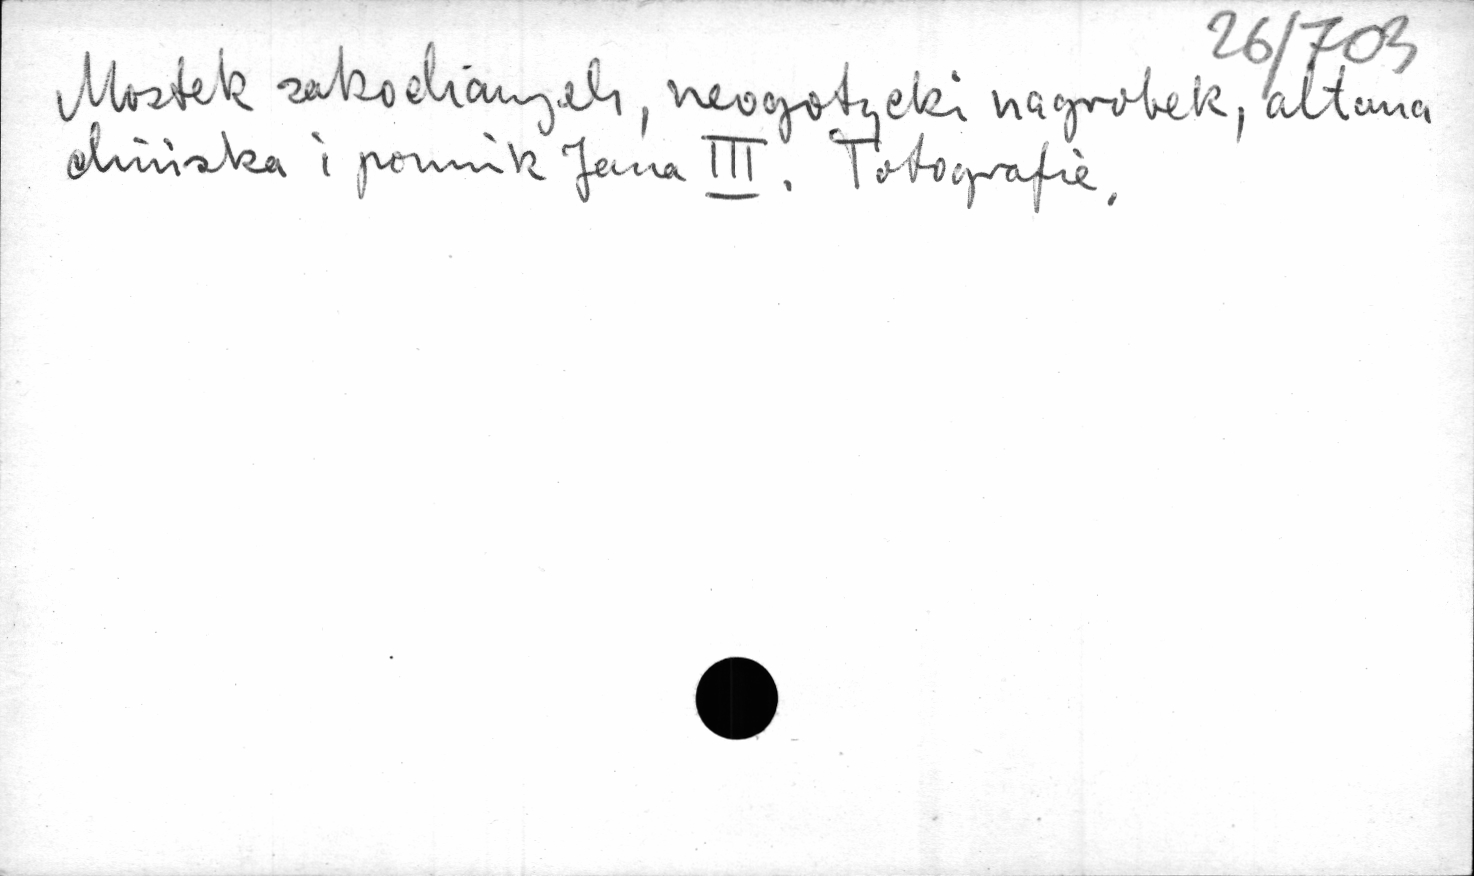 26/703
Mostek zakochanych, neogotycki nagrobek, altana
chińska i pomnik Jana III. Fotografie.